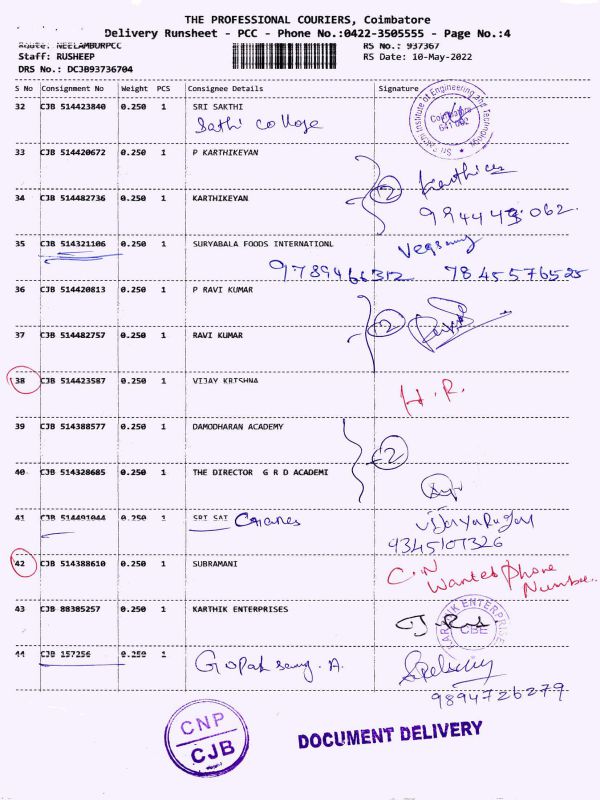 THE PROFESSIONAL COURIERS, Coimbatore
Delivery Runsheet - PCC - Phone No.:0422-3505555 - Page No.:4
Route: NEELAMBURPCC
RS No.: 937367
Staff: RUSHEEP
RS Date: 10-May-2022
DRS No.: DCJB93736704
S No Consignment No Weight PCS Consignee Details Signature
32 CJB 514423840 0.250 1 SRI SAKTHI
Sathi college
Sri Sakthi Institute of Engineering and Technology
Coimbatore
641 062
33 CJB 514420672 0.250 1 P KARTHIKEYAN
2
34 CJB 514482736 0.250 1 KARTHIKEYAN
35 CJB 514321106 0.250 1 SURYABALA FOODS INTERNATIONL
9789466312 7845576525
36 CJB 514420813 0.250 1 P RAVI KUMAR
2
37 CJB 514482757 0.250 1 RAVI KUMAR
38 CJB 514423587 0.250 1 VIJAY KRISHNA
H.R.
39 CJB 514388577 0.250 1 DAMODHARAN ACADEMY
2
40 CJB 514328685 0.250 1 THE DIRECTOR G R D ACADEMI
41 CJB 514491044 0.250 1 SRI SAI
9345107326
42 CJB 514388610 0.250 1 SUBRAMANI
C.N
Wanted phone
Number.
43 CJB 88385257 0.250 1 KARTHIK ENTERPRISES
KARTHIK ENTERPRISES
CBE
44 CJB 157256 0.250 1
9894726279
CNP
CJB
DOCUMENT DELIVERY